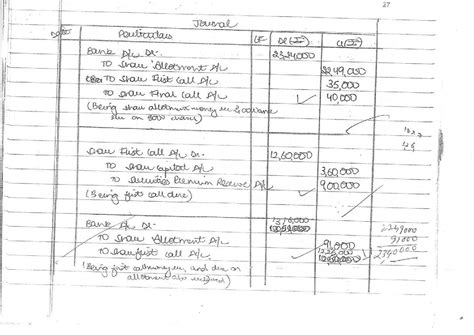 27
Journal
Date Particulars LF Dr (₹) Cr (₹)
Bank A/c Dr.
To Share Allotment A/c 2249,000
To Share First Call A/c 35,000
To Share Final Call A/c 40,000
(Being share allotment money
due on shares)
Share First Call A/c Dr. 12,60,000
To Share Capital A/c 3,60,000
To Securities Premium Reserve A/c 900,000
(Being first call due)
Bank A/c Dr.
To Share Allotment A/c 91,000
To Share first call A/c
(Being first call money and due on
allotment
2249000
91000
2340000